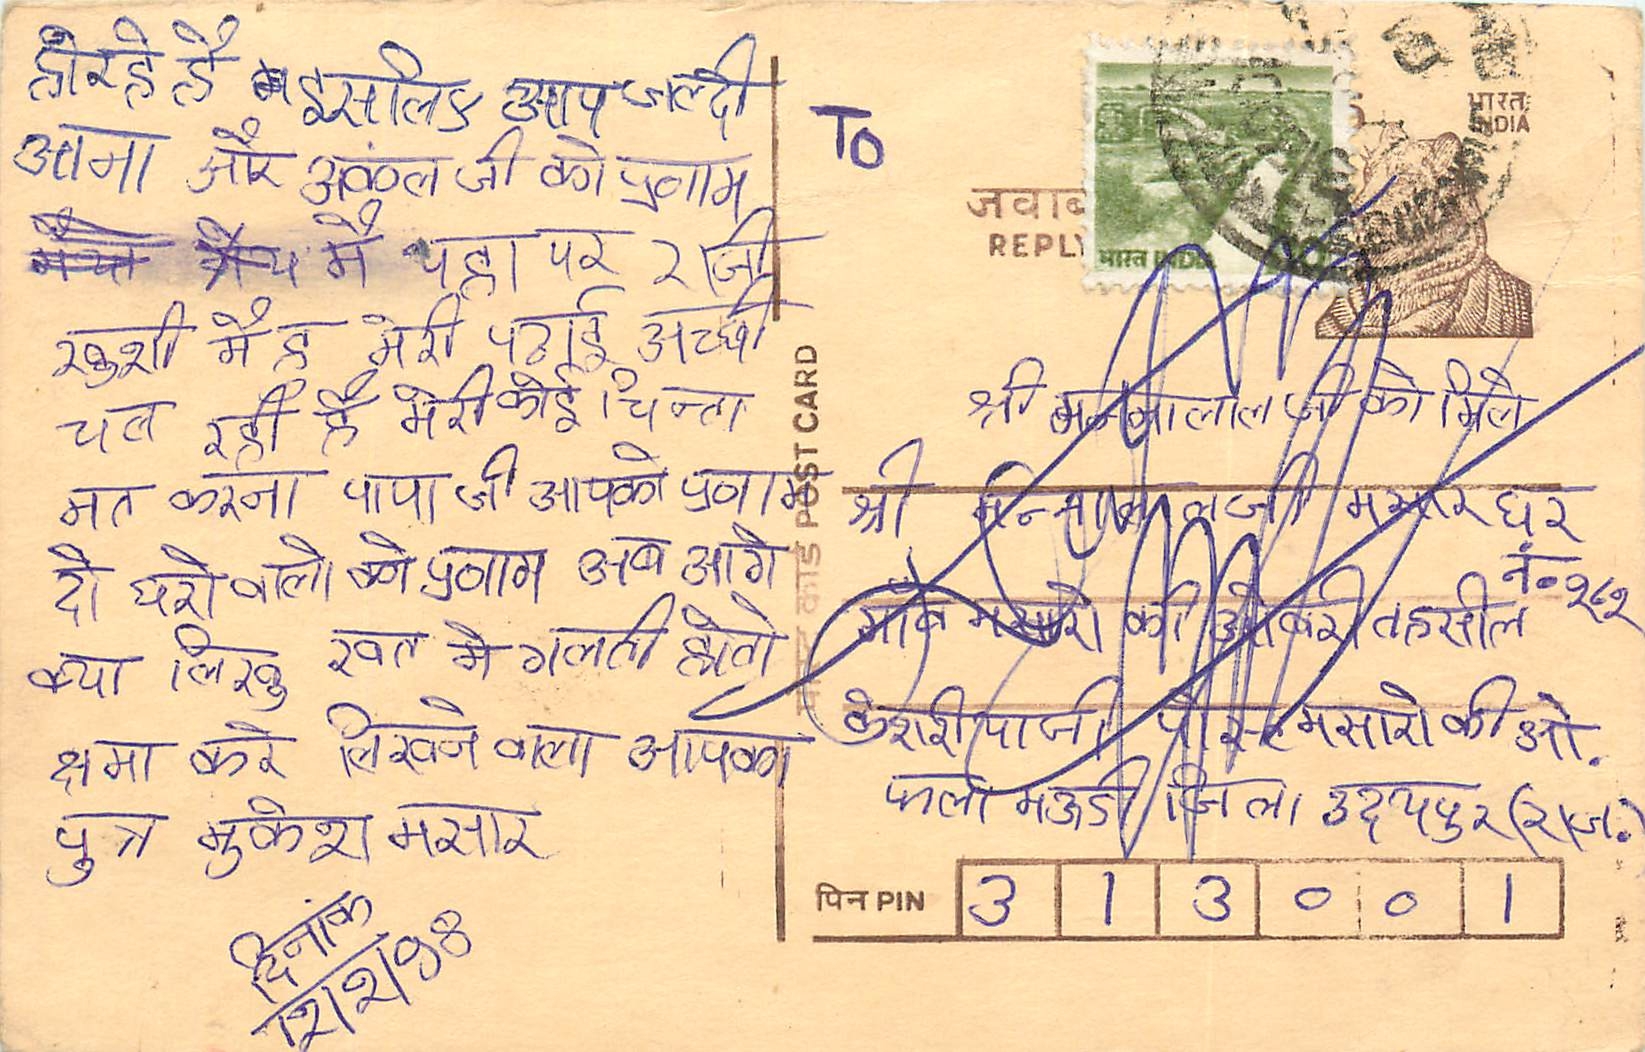 होरहे है इसलिए आप जल्दी
आना और अकंल जी को प्रनाम
मै यहा पर राजी
खुशी मै हू मेरी पढाई अच्छी
चल रही है मेरी कोई चिन्ता
मत करना पापा जी आपको प्रनाम
दो घरो वालो को प्रनाम अब आगे
क्या लिखु खत मे गलती होतो
क्षमा करे लिखने वाला आपका
पुत्र मुकेश मसार
दिनांक
TO
जवाब
REPLY
भारत
INDIA
भारत INDIA
POST CARD
श्री मन्नालाल जी को मिले
श्री मन्नालाल जी मसार घर
नं॰ २८२
गाँव मसारो की ओबरी तहसील
केशरीयाजी पोस्ट मसारो की ओ.
फला मऊडी जिला उदयपुर (राज.)
पिन PIN 3 1 3 0 0 1